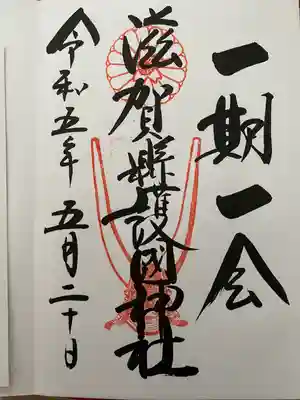 一期一会
滋賀縣護國神社
令和五年 五月二十日